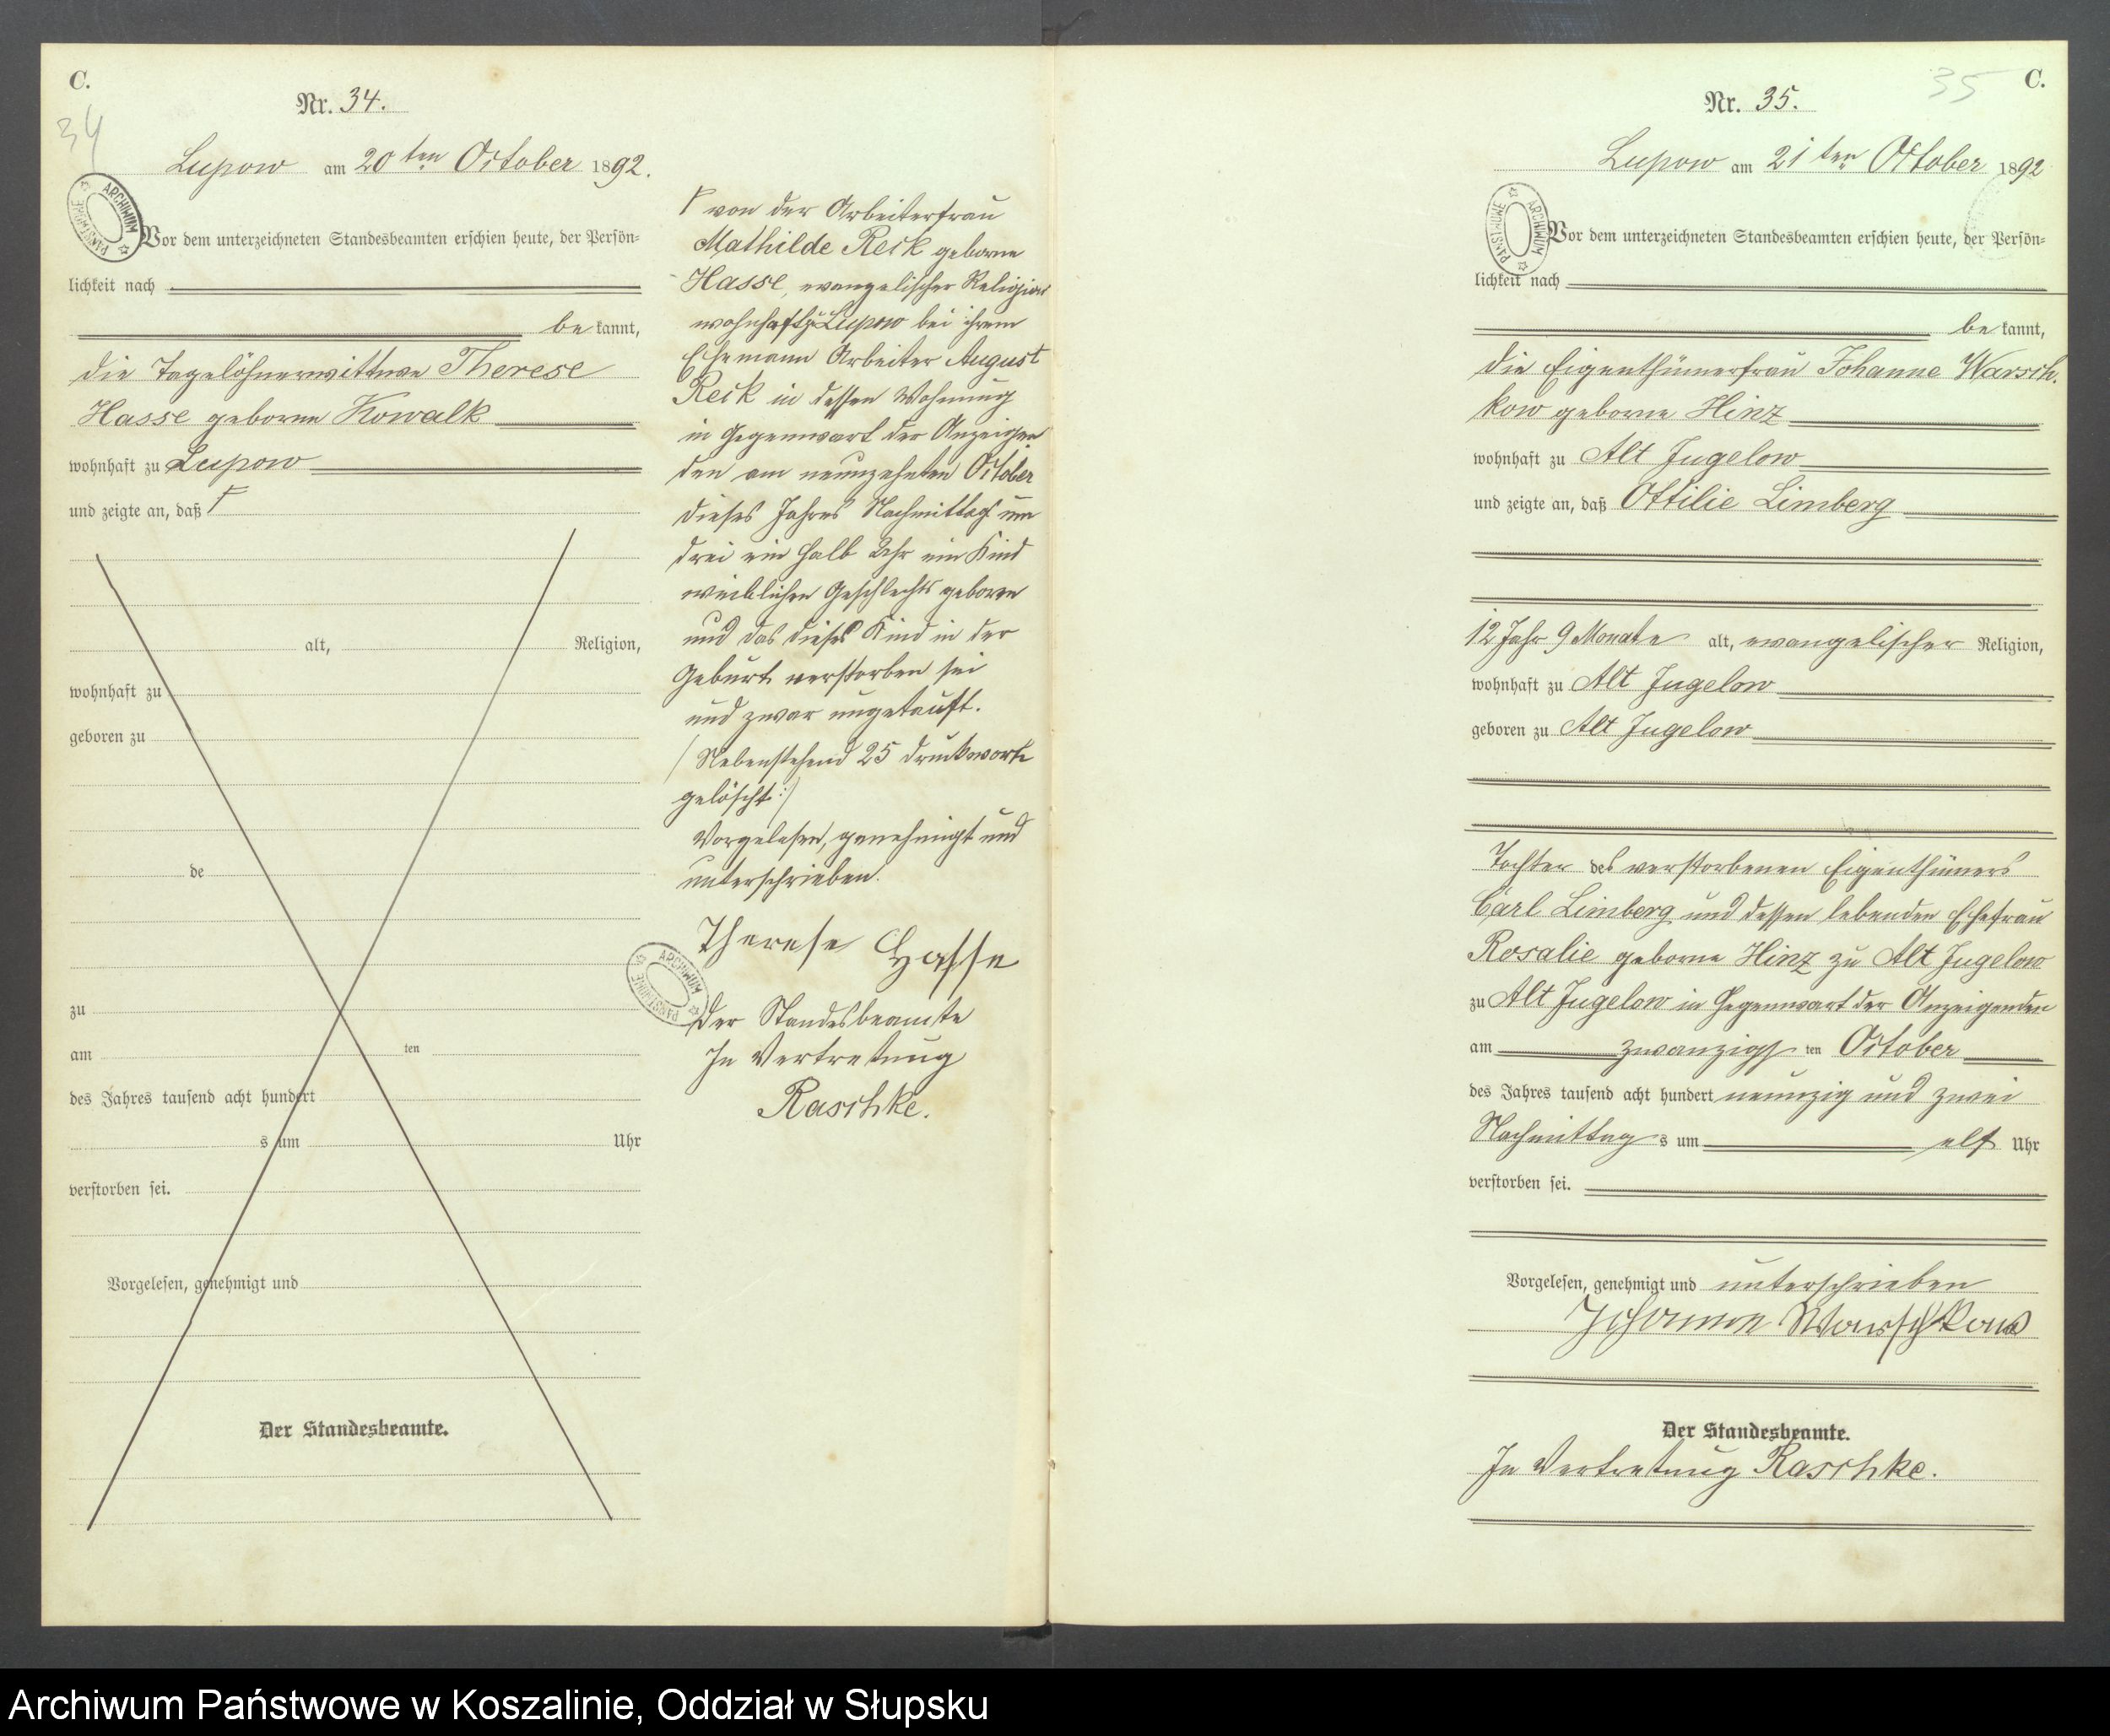 C.
34
Nr. 34.
Lupow am 20ten October 1892.
ARCHIWUM PAŃSTWOWE
Vor dem unterzeichneten Standesbeamten erschien heute, der Persön-
lichkeit nach
be kannt,
die Tagelöhnerwittwe Therese
Hasse geborne Kowalk
wohnhaft zu Lupow
und zeigte an, daß Γ
alt, Religion,
wohnhaft zu
geboren zu
de
zu
am ten
des Jahres tausend acht hundert
s um Uhr
verstorben sei.
Vorgelesen, genehmigt und
Der Standesbeamte.
Γ von der Arbeiterfrau
Mathilde Reck geborne
Hasse, evangelischer Religion
wohnhaft zu Lupow bei ihrem
Ehemann Arbeiter August
Reck in dessen Wohnung
in Gegenwart der Anzeigen
den am neunzehnten October
dieses Jahres Nachmittags um
drei ein halb Uhr ein Kind
weiblichen Geschlechts geboren
und das dieses Kind in der
Geburt verstorben sei
und zwar ungetauft.
/ Nebenstehend 25 Druckworte
gelöscht :/
Vorgelesen, genehmigt und
unterschrieben.
Therese Hasse
ARCHIWUM PAŃSTWOWE
Der Standesbeamte
In Vertretung
Raschke.
C.
35
Nr. 35.
Lupow am 21ten October 1892
ARCHIWUM PAŃSTWOWE
Vor dem unterzeichneten Standesbeamten erschien heute, der Persön-
lichkeit nach
be kannt,
die Eigenthümerfrau Johanne Warsch-
kow geborne Hinz
wohnhaft zu Alt Jugelow
und zeigte an, daß Ottilie Limberg
12 Jahr 9 Monate alt, evangelischer Religion,
wohnhaft zu Alt Jugelow
geboren zu Alt Jugelow
Tochter des verstorbenen Eigenthümers
Carl Limberg und dessen lebenden Ehefrau
Rosalie geborne Hinz zu Alt Jugelow
zu Alt Jugelow in Gegenwart der Anzeigenden
am zwanzigs ten October
des Jahres tausend acht hundert neunzig und zwei
Nachmittag s um elf Uhr
verstorben sei.
Vorgelesen, genehmigt und unterschrieben
Johanne Warschkow
Der Standesbeamte.
In Vertretung Raschke.
Archiwum Państwowe w Koszalinie, Oddział w Słupsku